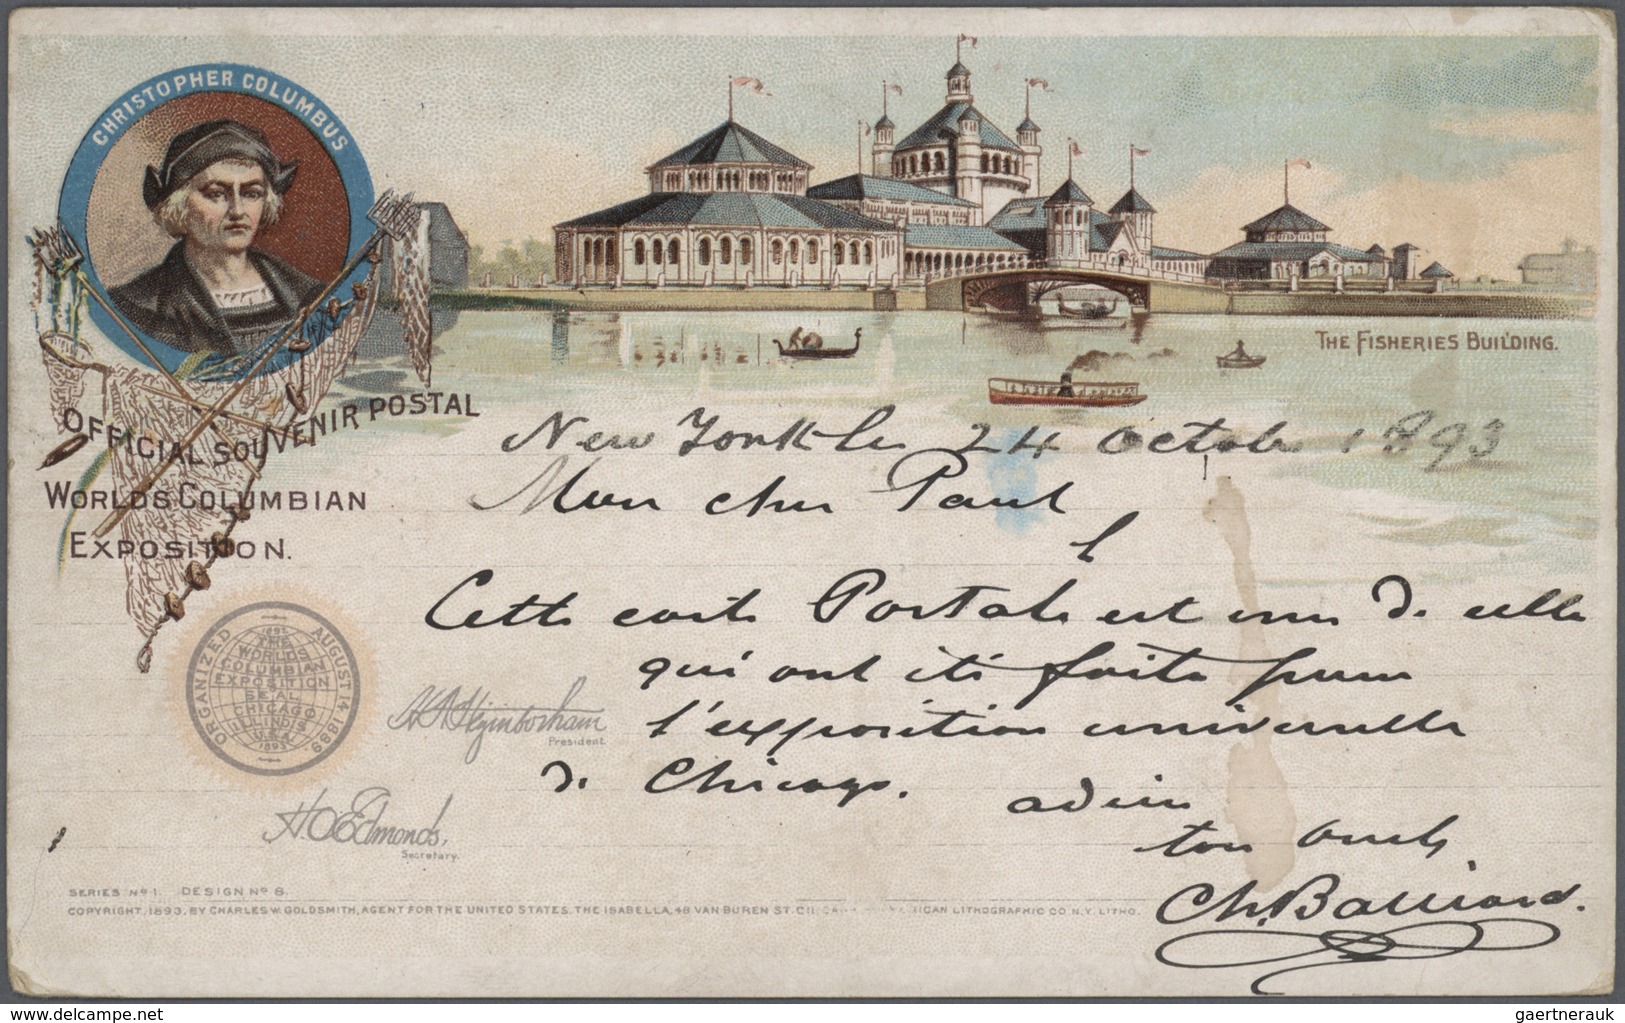 CHRISTOPHER COLUMBUS
THE FISHERIES BUILDING.
OFFICIAL SOUVENIR POSTAL
WORLDS COLUMBIAN
EXPOSITION.
New York le 24 Octobre 1893
Mon cher Paul
Cette carte Postale est une de celle
qui ont été faite pour
l'exposition universelle
de Chicago. adieu
ton Oncle
Ch. Balliard.
ORGANIZED AUGUST 14 1889
1893
THE
WORLDS
COLUMBIAN
EXPOSITION
SEAL
CHICAGO
ILLINOIS
U.S.A.
1893
H N Higinbotham
President.
H O Edmonds,
Secretary.
SERIES Nº 1. DESIGN Nº 6.
COPYRIGHT, 1893, BY CHARLES W. GOLDSMITH, AGENT FOR THE UNITED STATES. THE ISABELLA, 48 VAN BUREN ST. LITHOGRAPHIC CO N.Y. LITHO.
www.delcampe.net
gaertnerauk